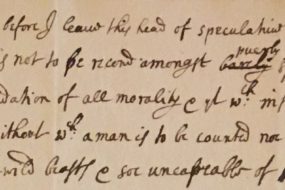 before I leave this head of speculative
is not to be recond amongst barely purely
dation of all morality & yt wch in
ithout wch a man is to be counted noe
wild beasts & soe uncapeable of